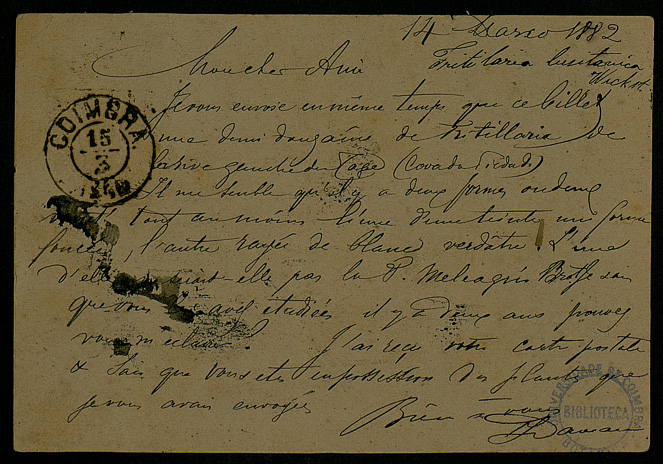 14 Março 1882
Fritilaria lusitanica
Wickst.
Mon cher Ami
Je vous envoie en même temps que ce billet
une demi douzaine de Fritillaria de
la rive gauche du Tage (Cova da Piedade)
Il me semble qu'il y a deux formes ou deux
tout au moins l'une d'une teinte uniforme
foncée, l'autre rayée de blanc verdâtre. L'une
d'elles serait-elle pas la F. Meleagris Brot. Je sais
que vous avez étudiées il y a deux ans pouvez
vous m'eclairer? J'ai reçu votre carte postale
& sais que vous etes en possession des plantes que
je vous avais envoyées
Bien à vous
Daveau
COIMBRA
15
3
UNIVERSIDADE DE COIMBRA
BIBLIOTECA